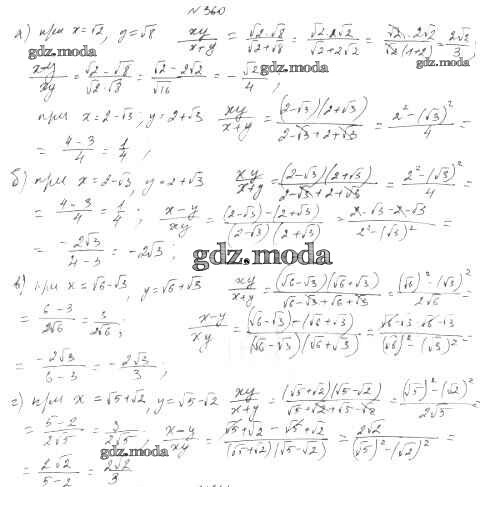 №360
а) при x=√2, y=√8 xy/(x+y) = (√2·√8)/(√2+√8) = (√2·2√2)/(√2+2√2) = (√2·2√2)/(√2(1+2)) = 2√2/3,
gdz.moda gdz.moda
(x-y)/(xy) = (√2-√8)/(√2·√8) = (√2-2√2)/√16 = -√2/4,
gdz.moda
при x=2-√3, y=2+√3 xy/(x+y) = ((2-√3)(2+√3))/(2-√3+2+√3) = (2²-(√3)²)/4 =
= (4-3)/4 = 1/4,
б) при x=2-√3, y=2+√3 xy/(x+y) = ((2-√3)(2+√3))/(2-√3+2+√3) = (2²-(√3)²)/4 =
= (4-3)/4 = 1/4; (x-y)/(xy) = ((2-√3)-(2+√3))/((2-√3)(2+√3)) = (2-√3-2-√3)/(2²-(√3)²) =
= -2√3/(4-3) = -2√3,
gdz.moda
в) при x=√6-√3, y=√6+√3 xy/(x+y) = ((√6-√3)(√6+√3))/(√6-√3+√6+√3) = ((√6)²-(√3)²)/(2√6) =
= (6-3)/(2√6) = 3/(2√6); (x-y)/(xy) = ((√6-√3)-(√6+√3))/((√6-√3)(√6+√3)) = (√6-√3-√6-√3)/((√6)²-(√3)²) =
= -2√3/(6-3) = -2√3/3,
г) при x=√5+√2, y=√5-√2 xy/(x+y) = ((√5+√2)(√5-√2))/(√5+√2+√5-√2) = ((√5)²-(√2)²)/(2√5) =
= (5-2)/(2√5) = 3/(2√5); (x-y)/(xy) = (√5+√2-√5+√2)/((√5+√2)(√5-√2)) = 2√2/((√5)²-(√2)²) =
gdz.moda
= 2√2/(5-2) = 2√2/3